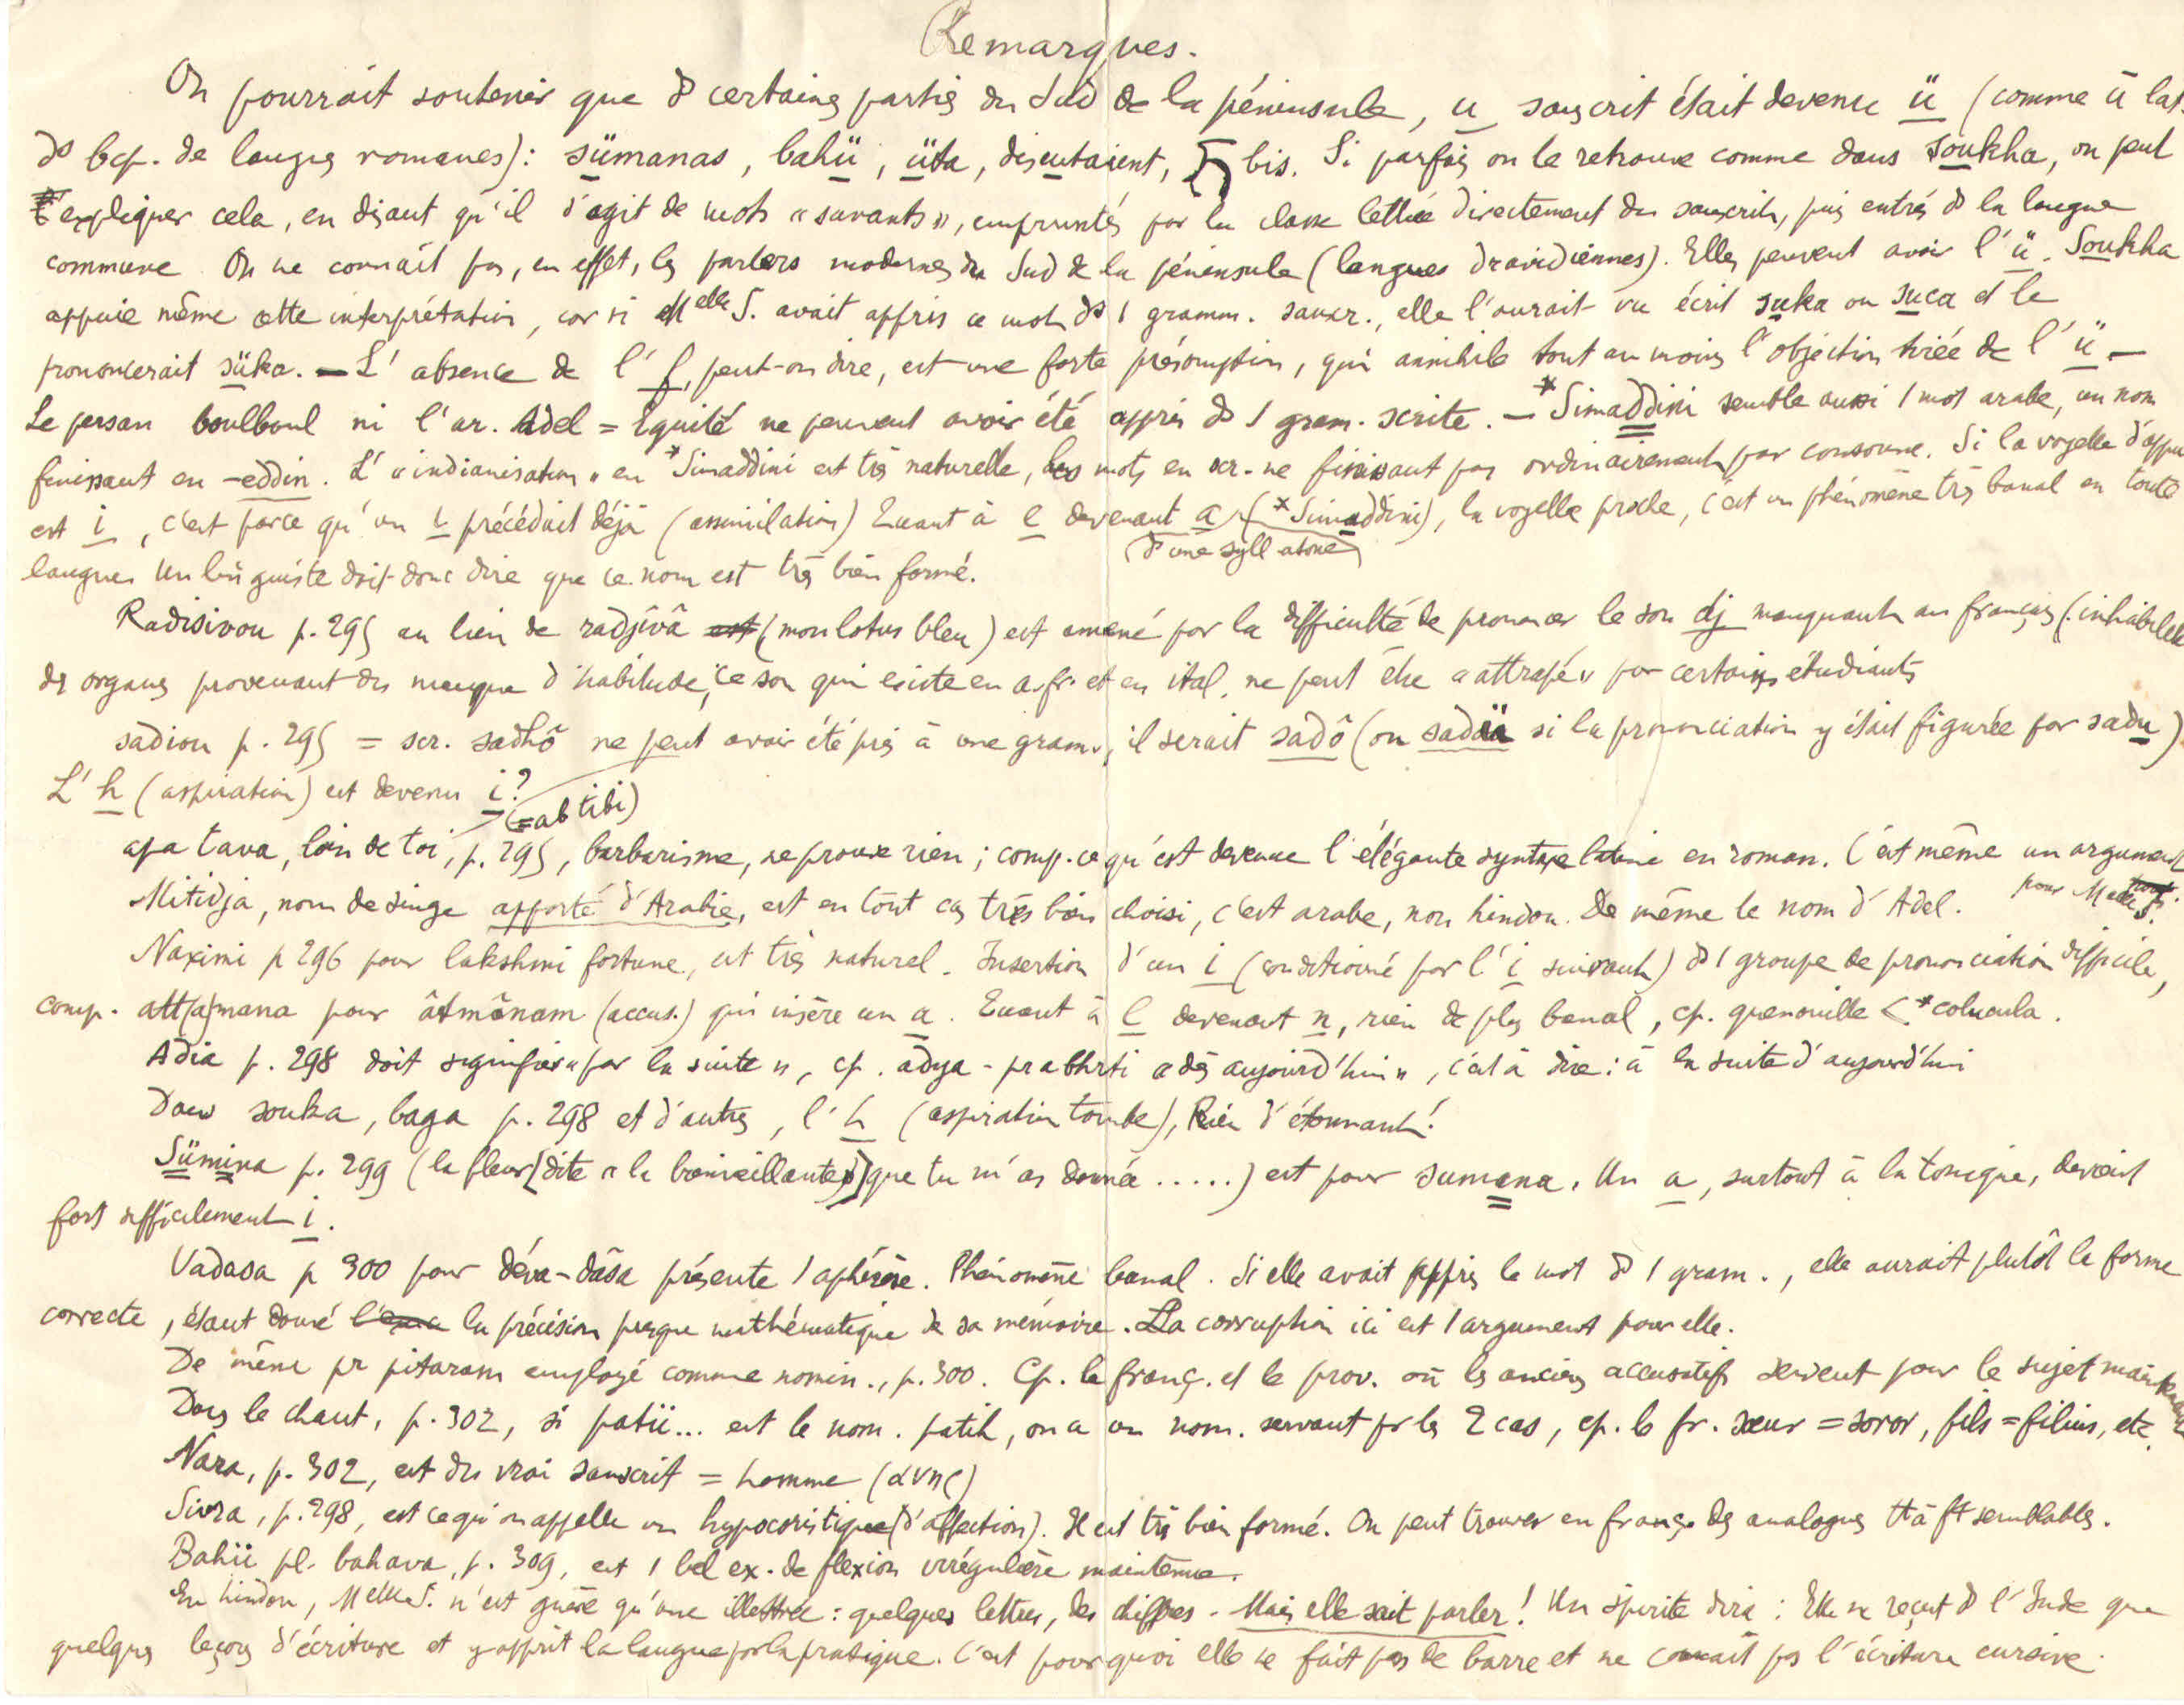 Remarques.
On pourrait soutenir que ds certaines parties du Sud de la péninsule, u sanscrit était devenu ü (comme ū lat.
ds bcp. de langues romanes): sümanas, bahü, üta, discutaient, bis. Si parfois on le retrouve comme dans soukha, on peut
expliquer cela, en disant qu'il s'agit de mots « savants », empruntés par la classe lettrée directement du sanscrit, puis entrés ds la langue
commune. On ne connaît pas, en effet, les parlers modernes du Sud de la péninsule (langues dravidiennes). Elles peuvent avoir l'ü. Soukha
appuie même cette interprétation, car si Melle S. avait appris ce mot ds 1 gramm. sanscr., elle l'aurait vu écrit suka ou suca et le
prononcerait süka. — L'absence de l'f, peut-on dire, est une forte présomption, qui annihile tout au moins l'objection tirée de l'ü —
Le persan boulboul ni l'ar. Adel = Equité ne peuvent avoir été appris ds 1 gram. scrite. — *Simaddini semble aussi 1 mot arabe, un nom
finissant en -eddin. L'« indianisation » en *Simaddini est très naturelle, les mots en scr. ne finissant pas ordinairement par consonne. Si la voyelle d'appui
est i, c'est parce qu'un i précédait déjà (assimilation) Quant à e devenant a (*Simaddini), la voyelle proche, c'est un phénomène très banal en toute
(ds une syll atone)
langue. Un linguiste doit donc dire que ce nom est très bien formé.
Radisivou p. 295 au lieu de radjîvâ (mon lotus bleu) est amené par la difficulté de prononcer le son dj manquant au français (inhabileté
des organes provenant du manque d'habitude; ce son qui existe en a.fr. et en ital. ne peut être « attrapé » par certains étudiants
sadiou p. 295 = scr. sadhô ne peut avoir été pris à une gram., il serait sadô (ou sadü si la prononciation y était figurée par sadu)
L'h (aspiration) est devenu i?
(= ab tibi)
apa tava, loin de toi, p. 295, barbarisme, ne prouve rien; comp. ce qu'est devenue l'élégante syntaxe latine en roman. C'est même un argument
pour Melle S.
Mitidja, nom de singe apporté d'Arabie, est en tout cas très bien choisi, c'est arabe, non hindou. De même le nom d'Adel.
Naximi p 296 pour lakshmi fortune, est très naturel. Insertion d'un i (conditionné par l'i suivant) ds 1 groupe de prononciation difficile,
comp. att[a]mana pour âtmânam (accus.) qui insère un a. Quant à l devenant n, rien de plus banal, cp. grenouille < *colucula.
Adia p. 298 doit signifier « par la suite », cp. adya-prabhrti « dès aujourd'hui », c'est à dire: à la suite d'aujourd'hui
Dans souka, baga p. 298 et d'autres, l'h (aspiration tombe), Rien d'étonnant!
Sümina p. 299 (la fleur [dite « la bienveillante »] que tu m'as donnée .....) est pour sumana. Un a, surtout à la tonique, devient
fort difficilement i.
Vadasa p 300 pour déva-dâsa présente 1 aphérèse. Phénomène banal. Si elle avait appris le mot ds 1 gram., elle aurait plutôt la forme
correcte, étant donné la précision presque mathématique de sa mémoire. La corruption ici est 1 argument pour elle.
De même pr pitaram employé comme nomin., p. 300. Cp. le franç. et le prov. où les anciens accusatifs servent pour le sujet maintenant
Dans le chant, p. 302, si patii... est le nom. patih, on a un nom. servant pr les 2 cas, cp. le fr. sœur = soror, fils = filius, etc.
Nara, p. 302, est du vrai sanscrit = homme
Sivra, p. 298, est ce qu'on appelle un hypocoristique (d'affection). Il est très bien formé. On peut trouver en franç. des analogues tt à ft semblables.
Bahü pl. bahava, p. 309, est 1 bel ex. de flexion irrégulière maintenue.
En hindou, Melle S. n'est guère qu'une illettrée: quelques lettres, des chiffres. Mais elle sait parler! Un spirite dira: Elle ne reçut ds l'Inde que
quelques leçons d'écriture et y apprit la langue par la pratique. C'est pourquoi elle ne fait pas de barre et ne connait pas l'écriture cursive.